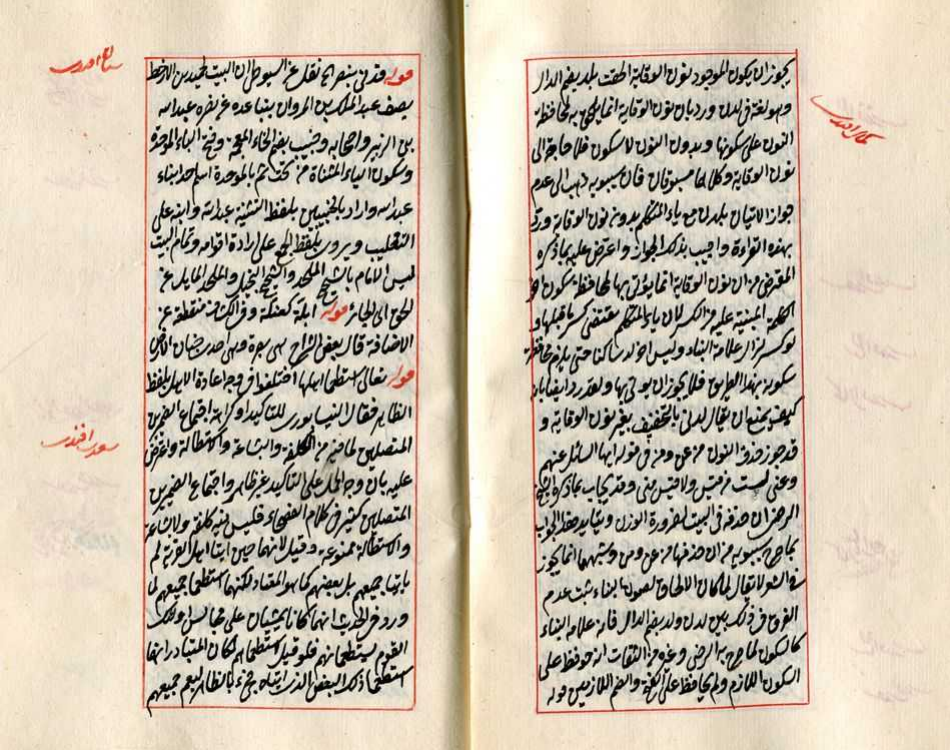 يجوز ان يكون الموجود نون الوقاية الحقت بلد بضم الدال
وهو لغة فى لدن ورد بان نون الوقاية انما يؤتى بها لمحافظة
النون على سكونها وبدون النون لا سكون فلا حاجة الى
نون الوقاية وكلاهما مسبوقان فان سيبويه ذهب الى عدم
جواز الاتيان بلدن مع ياء المتكلم بدون نون الوقاية ورد
بهذه القراءة واجيب بذلك الجواز واعترض عليه بما ذكره
المعترض من ان نون الوقاية انما يؤتى بها لمحافظة سكون
الكلمة المبنية عليه من الكسر لان ياء المتكلم تقتضى كسر ما قبلها
لو كسر لزال علامة البناء وليس اخر لد ساكنا حتى يلزم محافظة
سكونه بهذا الطريق فلا يجوز ان يؤتى بها ورد ايضا بانه
كيف يمنع ان يقال لدنى بالتخفيف بغير نون الوقاية و
قد جوز حذف النون من عن ومن فى قوله ايها السائل عنهم
وعنى لست من قيس ولا قيس منى وقد يجاب بما ذكره الشيخ
الرضى ان حذفه فى البيت لضرورة الوزن ويؤيد هذا الجواب
بما صرح سيبويه من ان حذفها من عن ومن وشبههما انما يجوز
فى الشعر لا يقال لمكان الالحاق لصون بناء ثبت عدم
الفرق فى ذلك بين لدن ولد بضم الدال فان علامة البناء
كالسكون لما صرح به الرضى وغيره من الثقات انه حوفظ على
السكون اللازم ولم يحافظ على الفتح والضم اللازمين قوله
قوله قدنى بنصر الخ نقل عن السيوطى ان البيت لحميد بن الارقط
يصف عبد الملك بن المروان بتقاعده عن نصرة عبد الله
بن الزبير واصحابه وخبيب بضم الخاء المعجمة وفتح الباء الموحدة
وسكون الياء المثناة من تحت ثم بالموحدة اسم احد ابناء
عبد الله واراد بالخبيبين بلفظ التثنية عبد الله وابنه على
التغليب ويروى بلفظ الجمع على ارادة اقوامه وتمام البيت
ليس الامام بالشحيح الملحد والشحيح البخيل والملحد المايل عن
الحق الى الجائر قوله ابلة كعتلة وفى الكشاف منقطعة عن
الاضافة قال بعض الشراح
قوله تعالى استطعما اهلها اختلفوا فى وجه اعادة الاهل بلفظ
الظاهر فقال النيسابورى للتاكيد او كراهة اجتماع الضميرين
المتصلين لما فيه من الكلفة والبشاعة والاستطالة واعترض
عليه بان وجه الحمل على التاكيد غير ظاهر واجتماع الضميرين
المتصلين كثير فى كلام الفصحاء فليس فيه كلفة ولا بشاعة
والاستطالة ممنوعة وقيل لانهما حين اتيا اهل القرية لم
ياتيا جميعهم بل بعضهم كما هو المعتاد لكنهما استطعما جميعهم لما
ورد فى الحديث انهما كانا يمشيان على مجالس اولئك
القوم يستطعمانهم فلو قيل استطعماهم لكان المتبادر انهما
استطعما ذلك البعض الذى اتياه فجىء بالظاهر ليعم جميعهم
سعدى افندى